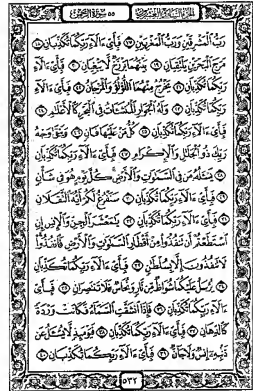 الجزء السابع والعشرون ٥٥ سورة الرحمن
رَبُّ الْمَشْرِقَيْنِ وَرَبُّ الْمَغْرِبَيْنِ ۝١٧ فَبِأَيِّ ءَالَآءِ رَبِّكُمَا تُكَذِّبَانِ ۝١٨
مَرَجَ الْبَحْرَيْنِ يَلْتَقِيَانِ ۝١٩ بَيْنَهُمَا بَرْزَخٌ لَّا يَبْغِيَانِ ۝٢٠ فَبِأَيِّ ءَالَآءِ
رَبِّكُمَا تُكَذِّبَانِ ۝٢١ يَخْرُجُ مِنْهُمَا اللُّؤْلُؤُ وَالْمَرْجَانُ ۝٢٢ فَبِأَيِّ ءَالَآءِ
رَبِّكُمَا تُكَذِّبَانِ ۝٢٣ وَلَهُ الْجَوَارِ الْمُنشَئَاتُ فِي الْبَحْرِ كَالْأَعْلَامِ ۝٢٤
فَبِأَيِّ ءَالَآءِ رَبِّكُمَا تُكَذِّبَانِ ۝٢٥ كُلُّ مَنْ عَلَيْهَا فَانٍ ۝٢٦ وَيَبْقَىٰ وَجْهُ
رَبِّكَ ذُو الْجَلَالِ وَالْإِكْرَامِ ۝٢٧ فَبِأَيِّ ءَالَآءِ رَبِّكُمَا تُكَذِّبَانِ
۝٢٨ يَسْأَلُهُ مَن فِي السَّمَاوَاتِ وَالْأَرْضِ كُلَّ يَوْمٍ هُوَ فِي شَأْنٍ
۝٢٩ فَبِأَيِّ ءَالَآءِ رَبِّكُمَا تُكَذِّبَانِ ۝٣٠ سَنَفْرُغُ لَكُمْ أَيُّهَ الثَّقَلَانِ
۝٣١ فَبِأَيِّ ءَالَآءِ رَبِّكُمَا تُكَذِّبَانِ ۝٣٢ يَامَعْشَرَ الْجِنِّ وَالْإِنسِ إِنِ
اسْتَطَعْتُمْ أَن تَنفُذُوا مِنْ أَقْطَارِ السَّمَاوَاتِ وَالْأَرْضِ فَانفُذُوا
لَا تَنفُذُونَ إِلَّا بِسُلْطَانٍ ۝٣٣ فَبِأَيِّ ءَالَآءِ رَبِّكُمَا تُكَذِّبَانِ
۝٣٤ يُرْسَلُ عَلَيْكُمَا شُوَاظٌ مِّن نَّارٍ وَنُحَاسٌ فَلَا تَنتَصِرَانِ ۝٣٥ فَبِأَيِّ
ءَالَآءِ رَبِّكُمَا تُكَذِّبَانِ ۝٣٦ فَإِذَا انشَقَّتِ السَّمَاءُ فَكَانَتْ وَرْدَةً
كَالدِّهَانِ ۝٣٧ فَبِأَيِّ ءَالَآءِ رَبِّكُمَا تُكَذِّبَانِ ۝٣٨ فَيَوْمَئِذٍ لَّا يُسْأَلُ عَن
ذَنبِهِ إِنسٌ وَلَا جَانٌّ ۝٣٩ فَبِأَيِّ ءَالَآءِ رَبِّكُمَا تُكَذِّبَانِ ۝٤٠
٥٣٢